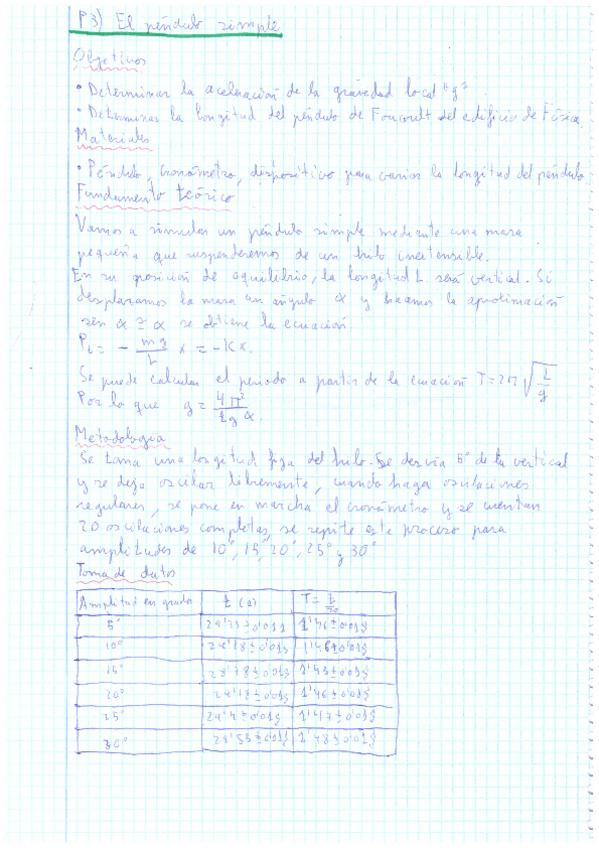 P3) El péndulo simple
Objetivos
• Determinar la aceleración de la gravedad local "g"
• Determinar la longitud del péndulo de Foucoult del edificio de Física
Materiales
• Péndulo, cronómetro, dispositivo para variar la longitud del péndulo
Fundamento teórico
Vamos a simular un péndulo simple mediante una masa
pequeña que suspenderemos de un hilo inextensible.
En su posición de equilibrio, la longitud L será vertical. Si
desplazamos la masa un ángulo α y hacemos la aproximación
sen α ≅ α se obtiene la ecuación
= - mg/L x = -Kx.
Se puede calcular el periodo a partir de la ecuación T = 2π √(L/g)
Por lo que g = 4π²/tg α.
Metodología
Se toma una longitud fija del hilo. Se desvía 5° de la vertical
y se deja oscilar libremente, cuando haga oscilaciones
regulares, se pone en marcha el cronómetro y se cuentan
20 oscilaciones completas, se repite este proceso para
amplitudes de 10°, 15°, 20°, 25° y 30°
Toma de datos
Amplitud en grados t (s) T = t/20
5° 1'46±0'01s
10° 1'46±0'01s
15°
20° 1'46±0'01s
25° 1'47±0'01s
30° 1'48±0'01s